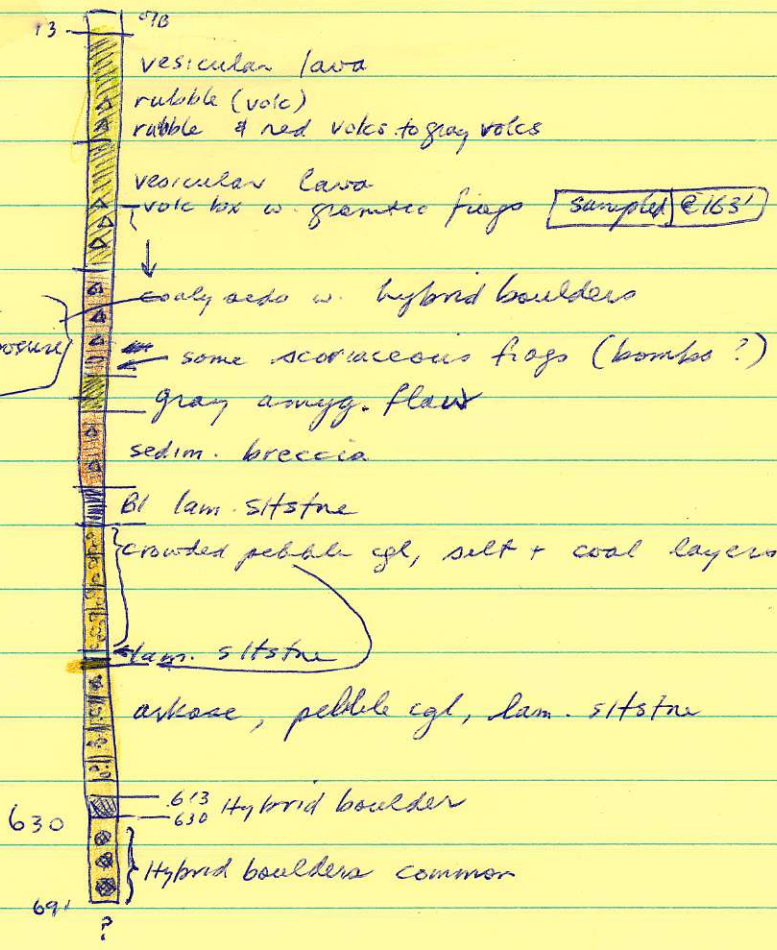 13 OB
vesicular lava
rubble (volc)
rubble & red volcs to gray volcs
vesicular lava
volc bx w. granitic frags sampled @163'
coaly seds w. hybrid boulders
some scoriaceous frags (bombs?)
gray amyg. flow
sedim. breccia
Bl lam. sltstne
crowded pebble cgl, silt + coal layers
lam. sltstne
arkose, pebble cgl, lam. sltstne
613 Hybrid boulder
630 630
Hybrid boulders common
691
?